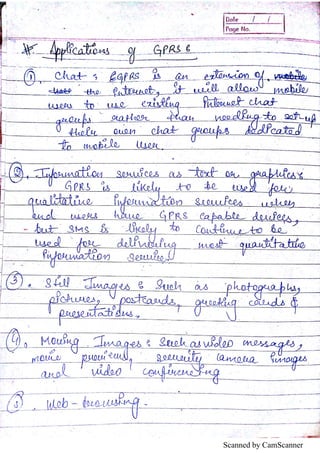 Date / /
Page No.
#. Applications of GPRS :
①. Chat : GPRS is an extension of
the Internet, it will allow mobile
users to use existing Internet chat
groups rather than needing to set-up
their own chat groups dedicated
to mobile user.
②. Information services as text or graphics :
GPRS is likely to be used for
qualitative information services when
end users have GPRS capable devices,
- but SMS is likely to continue to be
used for delivering most quantitative
information services.
③. Still Images : Such as photographs,
pictures, postcards, greeting cards &
presentations.
④. Moving Images : Such as video messages,
movie previews, security camera images
and video conferencing
⑤. Web - browsing.
Scanned by CamScanner